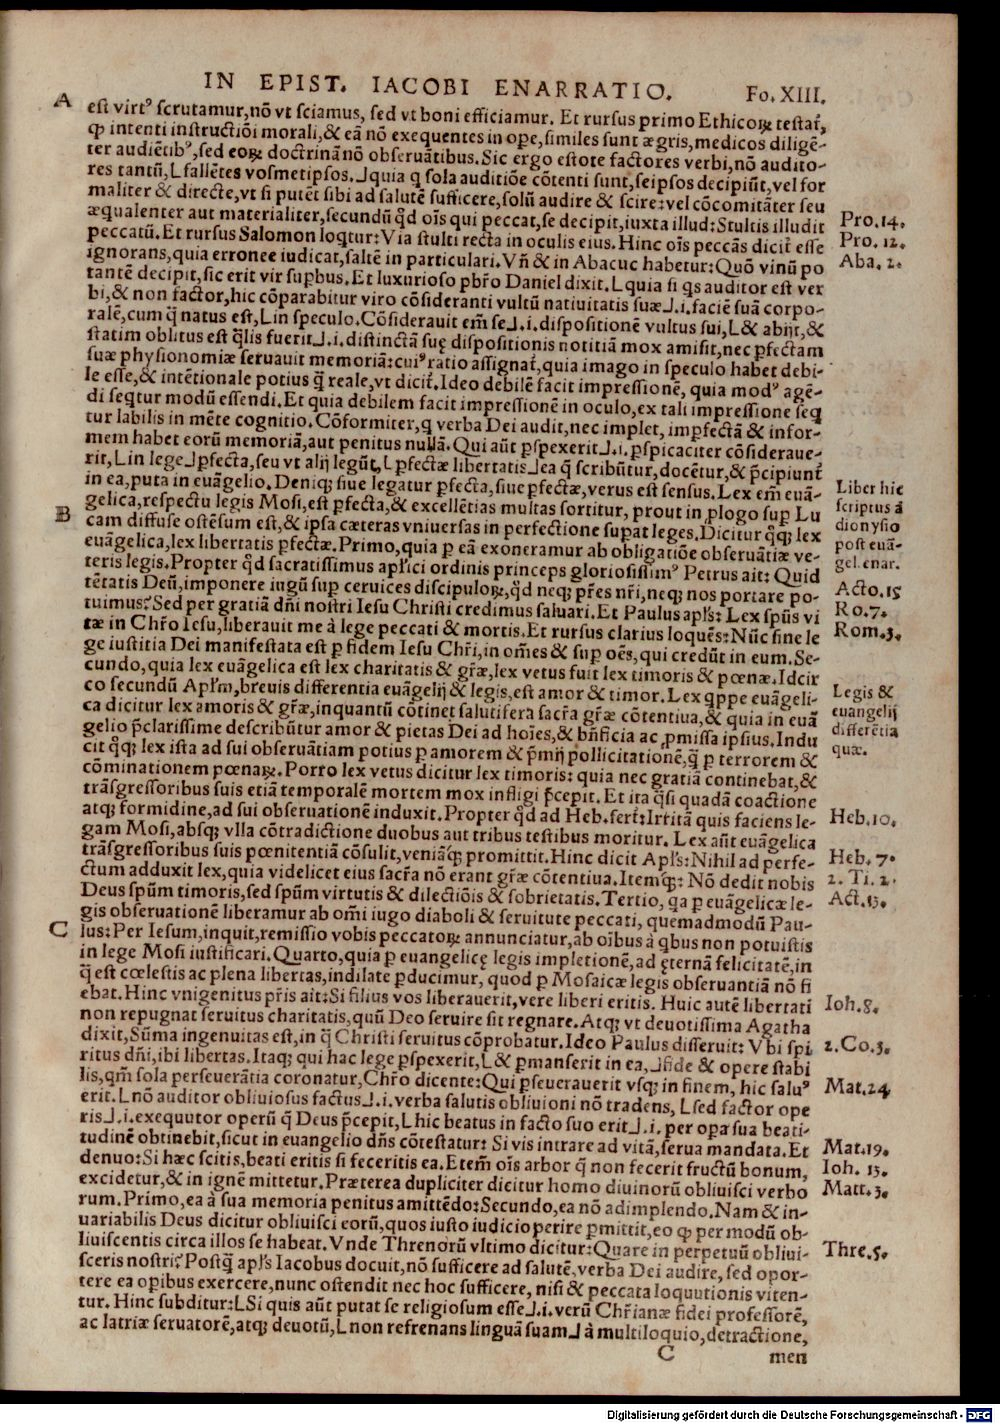 IN EPIST. IACOBI ENARRATIO. Fo. XIII.
A
est virtꝰ scrutamur, nō vt sciamus, sed vt boni efficiamur. Et rursus primo Ethicoꝝ testat᷑,
ꝙ intenti instructiōi morali, & eā nō exequentes in ope, similes sunt ægris, medicos diligē-
ter audiētibꝰ, sed eoꝝ doctrinā nō obseruātibus. Sic ergo estote factores verbi, nō audito-
res tantū, L fallētes vosmetipsos. ⅃ quia q̇ sola auditiōe cōtenti sunt, seipsos decipiūt, vel for
maliter & directe, vt si putēt sibi ad salutē sufficere, solū audire & scire: vel cōcomitāter seu
æqualenter aut materialiter, secundū qd̄ oīs qui peccat, se decipit, iuxta illud: Stultis illudit
Pro. 14.
peccatū. Et rursus Salomon loqt᷑ur: Via stulti recta in oculis eius. Hinc oīs peccās dicit᷑ esse
Pro. 12.
ignorans, quia erronee iudicat, saltē in particulari. Vñ & in Abacuc habetur: Quō vinū po
Aba. 2.
tantē decipit, sic erit vir supbus. Et luxurioso pbr̄o Daniel dixit. L quia si q̇s auditor est ver
bi, & non factor, hic cōparabitur viro cōsideranti vultū natiuitatis suæ ⅃ .i. faciē suā corpo-
ralē, cum q̄ natus est, L in speculo. Cōsiderauit em̄ se ⅃ .i. dispositionē vultus sui, L & abijt, &
statim oblitus est q̄lis fuerit ⅃ .i. distinctā suę dispositionis notitiā mox amisit, nec ꝑfectam
suæ physionomiæ seruauit memoriā: cuiꝰ ratio assignat᷑, quia imago in speculo habet debi-
le esse, & intētionale potius q̄ reale, vt dicit᷑. Ideo debilē facit impressionē, quia modꝰ agē-
di seqt᷑ur modū essendi. Et quia debilem facit impressionē in oculo, ex tali impressione seq
tur labilis in mēte cognitio. Cōformiter, q̇ verba Dei audit, nec implet, imꝑfectā & infor-
mem habet eorū memoriā, aut penitus nullā. Qui aūt ꝑspexerit ⅃ .i. ꝑspicaciter cōsideraue-
rit, L in lege ⅃ ꝑfecta, seu vt alij legūt, L ꝑfectæ libertatis ⅃ ea q̄ scribūtur, docētur, & p̄cipiunt᷑
in ea, puta in euāgelio. Deniq; siue legatur ꝑfecta, siue ꝑfectæ, verus est sensus. Lex em̄ euā-
Liber hic
scriptus a
dionysio
post euā-
gel. enar.
B
gelica, respectu legis Mosi, est ꝑfecta, & excellētias multas sortitur, prout in ꝓlogo suꝑ Lu
cam diffuse ostēsum est, & ipsa cæteras vniuersas in perfectione suꝑat leges. Dicitur q̇q; lex
euāgelica, lex libertatis ꝑfectæ. Primo, quia ꝑ eā exoneramur ab obligatiōe obseruātiæ ve-
teris legis. Propter qd̄ sacratissimus apl'ici ordinis princeps gloriosissimꝰ Petrus ait: Quid
tētatis Deū, imponere iugū suꝑ ceruices discipuloꝝ, qd̄ neq; p̄res nr̄i, neq; nos portare po-
Acto. 15
tuimus? Sed per gratiā dn̄i nostri Iesu Christi credimus saluari. Et Paulus apl's: Lex spūs vi
Ro. 7.
tæ in Chr̄o Iesu, liberauit me à lege peccati & mortis. Et rursus clarius loquēs: Nūc sine le
Rom. 3.
ge iustitia Dei manifestata est ꝑ fidem Iesu Chr̄i, in om̄es & suꝑ oēs, qui credūt in eum. Se-
cundo, quia lex euāgelica est lex charitatis & gr̄æ, lex vetus fuit lex timoris & pœnæ. Idcir
co secundū Apl'm, breuis differentia euāgelij & legis, est amor & timor. Lex q̇ppe euāgeli-
Legis &
euangelij
differētia
quæ.
ca dicitur lex amoris & gr̄æ, inquantū cōtinet salutifera sacr̄a gr̄æ cōtentiua, & quia in euā
gelio p̄clarissime describūtur amor & pietas Dei ad hoīes, & bn̄ficia ac ꝓmissa ipsius. Indu
cit q̇q; lex ista ad sui obseruātiam potius ꝑ amorem & p̄mij pollicitationē, q̄ ꝑ terrorem &
cōminationem pœnaꝝ. Porro lex vetus dicitur lex timoris: quia nec gratiā continebat, &
trāsgressoribus suis etiā temporalē mortem mox infligi p̄cepit. Et ita q̄si quadā coactione
atq; formidine, ad sui obseruationē induxit. Propter qd̄ ad Heb. fert᷑: Irritā quis faciens le-
Heb. 10.
gam Mosi, absq; vlla cōtradictione duobus aut tribus testibus moritur. Lex aūt euāgelica
trāsgressoribus suis pœnitentiā cōsulit, veniāq; promittit. Hinc dicit Apl's: Nihil ad perfe-
Heb. 7.
ctum adduxit lex, quia videlicet eius sacr̄a nō erant gr̄æ cōtentiua. Itemq;: Nō dedit nobis
2. Ti. 2.
Deus spūm timoris, sed spūm virtutis & dilectiōis & sobrietatis. Tertio, qa ꝑ euāgelicæ le-
Act. 13.
gis obseruationē liberamur ab om̄i iugo diaboli & seruitute peccati, quemadmodū Pau-
C
lus: Per Iesum, inquit, remissio vobis peccatoꝝ annunciatur, ab oībus à q̇bus non potuistis
in lege Mosi iustificari. Quarto, quia ꝑ euangelicę legis impletionē, ad ęternā felicitatē, in
q̄ est cœlestis ac plena libertas, indilate ꝑducimur, quod ꝑ Mosaicæ legis obseruantiā nō fi
ebat. Hinc vnigenitus pr̄is ait: Si filius vos liberauerit, vere liberi eritis. Huic autē libertati
Ioh. 8.
non repugnat seruitus charitatis, quū Deo seruire sit regnare. Atq; vt deuotissima Agatha
dixit, Sūma ingenuitas est, in q̄ Christi seruitus cōprobatur. Ideo Paulus disseruit: Vbi spi
2. Co. 3.
ritus dn̄i, ibi libertas. Itaq; qui hac lege ꝑspexerit, L & ꝑmanserit in ea, ⅃ fide & opere stabi
lis, qm̄ sola perseuerātia coronatur, Chr̄o dicente: Qui ꝑseuerauerit vsq; in finem, hic saluꝰ
Mat. 24
erit. L nō auditor obliuiosus factus ⅃ .i. verba salutis obliuioni nō tradens, L sed factor ope
ris ⅃ .i. exequutor operū q̄ Deus p̄cepit, L hic beatus in facto suo erit ⅃ .i. per opa sua beati-
tudinē obtinebit, sicut in euangelio dn̄s cōtestatur: Si vis intrare ad vitā, serua mandata. Et
Mat. 19.
denuo: Si hæc scitis, beati eritis si feceritis ea. Etem̄ oīs arbor q̄ non fecerit fructū bonum,
Ioh. 13.
excidetur, & in ignē mittetur. Præterea dupliciter dicitur homo diuinorū obliuisci verbo
Matt. 3.
rum. Primo, ea à sua memoria penitus amittēdo: Secundo, ea nō adimplendo. Nam & in-
uariabilis Deus dicitur obliuisci eorū, quos iusto iudicio perire ꝑmittit, eo ꝙ per modū ob-
liuiscentis circa illos se habeat. Vnde Threnorū vltimo dicitur: Quare in perpetuū obliui-
Thre. 5.
sceris nostri? Postq̄ apl's Iacobus docuit, nō sufficere ad salutē, verba Dei audire, sed opor-
tere ea opibus exercere, nunc ostendit nec hoc sufficere, nisi & peccata loquutionis viten-
tur. Hinc subditur: L Si quis aūt putat se religiosum esse ⅃ .i. verū Chr̄ianæ fidei professorē,
ac latriæ seruatorē, atq; deuotū, L non refrenans linguā suam ⅃ à multiloquio, detractione,
C men
Digitalisierung gefördert durch die Deutsche Forschungsgemeinschaft - DFG